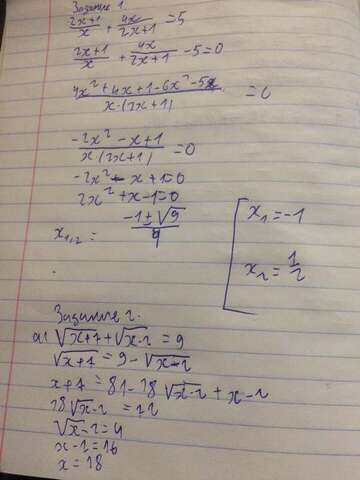 Задание 1.
(2x+1)/x + 4x/(2x+1) = 5
(2x+1)/x + 4x/(2x+1) - 5 = 0
(4x² + 4x + 1 - 6x² - 5x)/(x·(2x+1)) = 0
(-2x² - x + 1)/(x(2x+1)) = 0
-2x² - x + 1 = 0
2x² + x - 1 = 0
x₁,₂ = (-1 ± √9)/4
[ x₁ = -1
x₂ = 1/2
Задание 2.
а) √(x+7) + √(x-2) = 9
√(x+7) = 9 - √(x-2)
x+7 = 81 - 18√(x-2) + x - 2
18√(x-2) = 72
√(x-2) = 4
x-2 = 16
x = 18